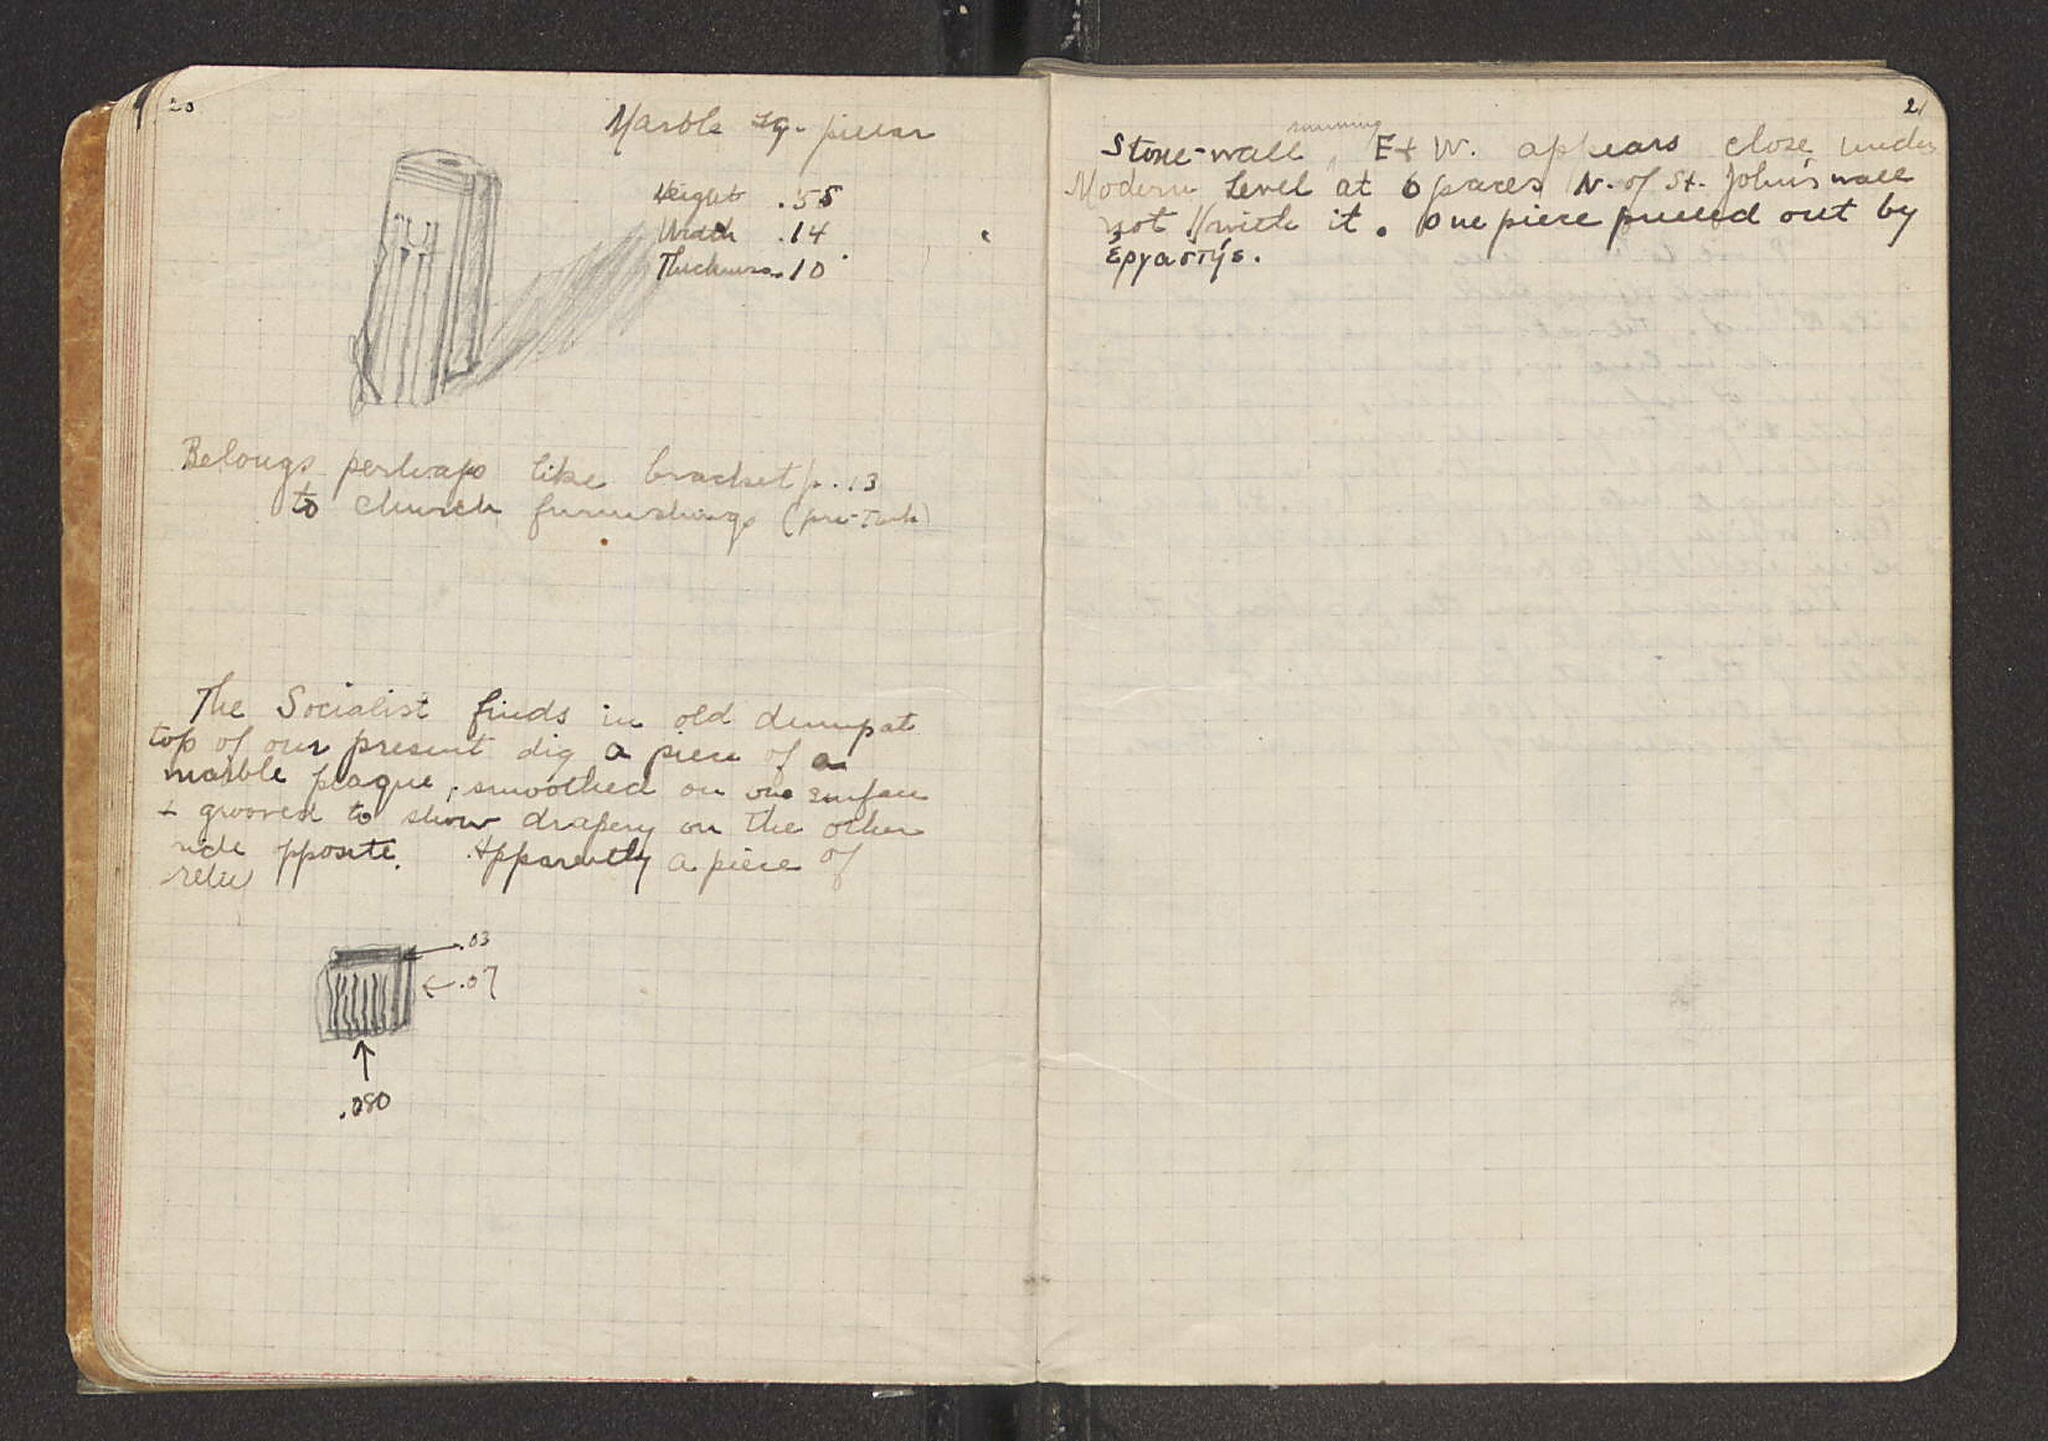 20
Marble sq. pillar
Height .55
Width .14
Thickness .10
Belongs perhaps like bracket p. 13
to church furnishings (pre-Turk)
The Socialist finds in old dump at
top of our present dig a piece of a
marble plaque, smoothed on one surface
+ grooved to show drapery on the other
side pposite. Apparently a piece of
relie
.03
.07
.080
21
running
Stone-wall, E + W. appears close under
Modern Level at 6 paces N. of St. John's wall
not // with it. One piece pulled out by
ἐργαστής.